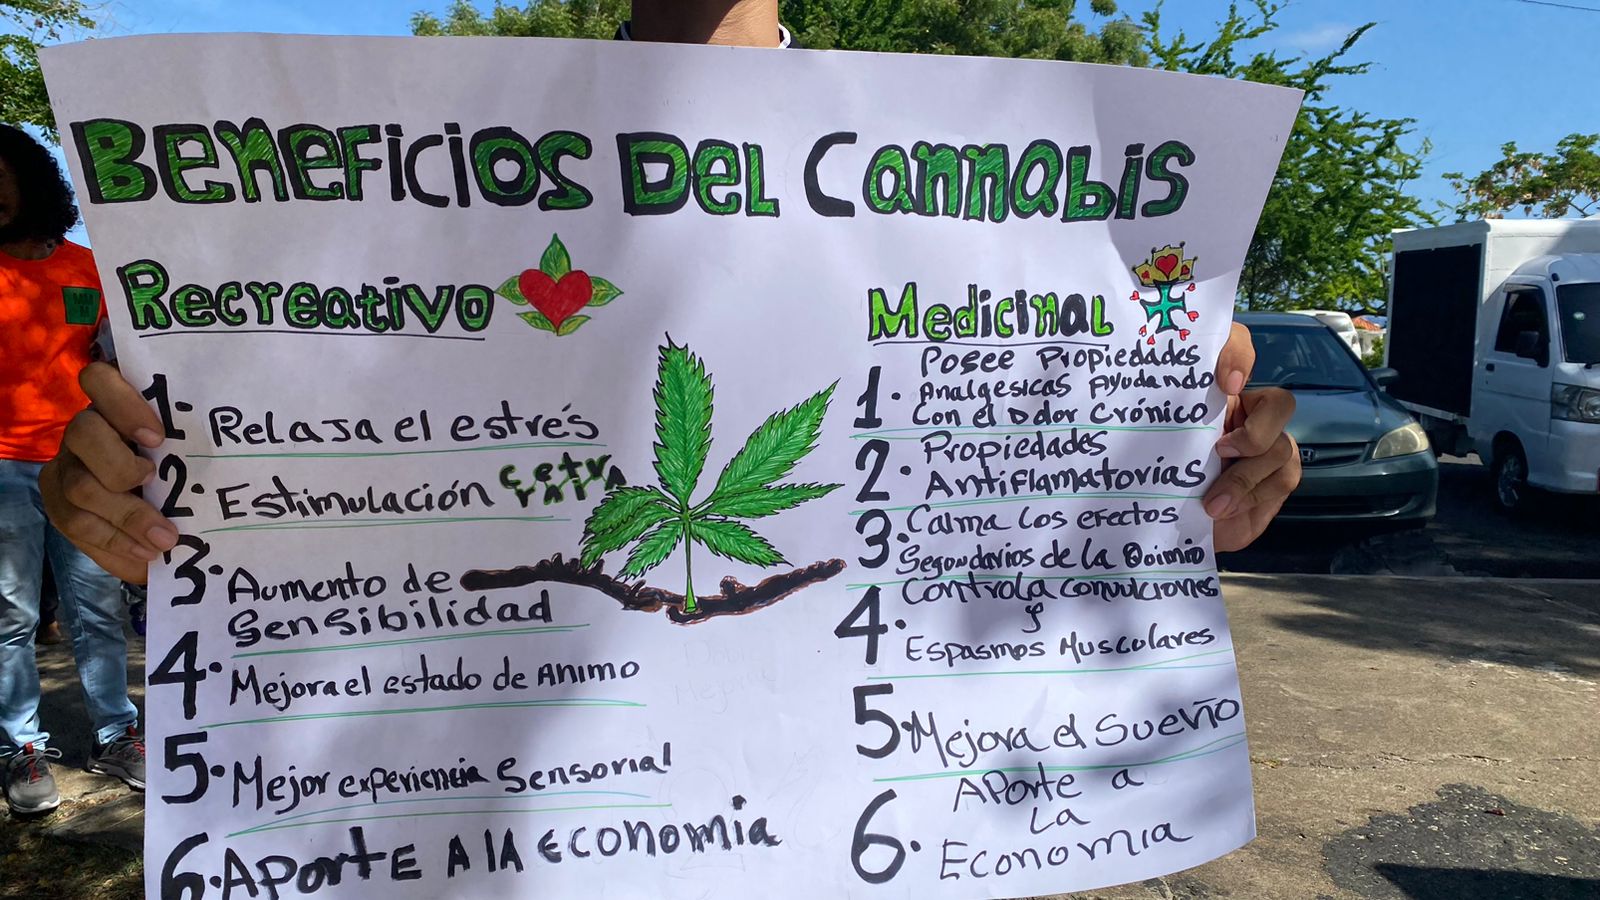 Beneficios Del Cannabis
Recreativo
1. Relaja el estrés
2. Estimulación cetr
raira
3. Aumento de
Sensibilidad
4. Mejora el estado de Animo
5. Mejor experiencia Sensorial
6. Aporte A lA Economia
Medicinal
1. Posee Propiedades
Analgesicas Ayudando
Con el Dolor Crónico
2. Propiedades
Antiflamatorias
3. Calma Los efectos
Segondarios de La Quimio
4. Controla convulciones
y
Espasmos Musculares
5. Mejora el Sueño
6. Aporte a
La
Economia